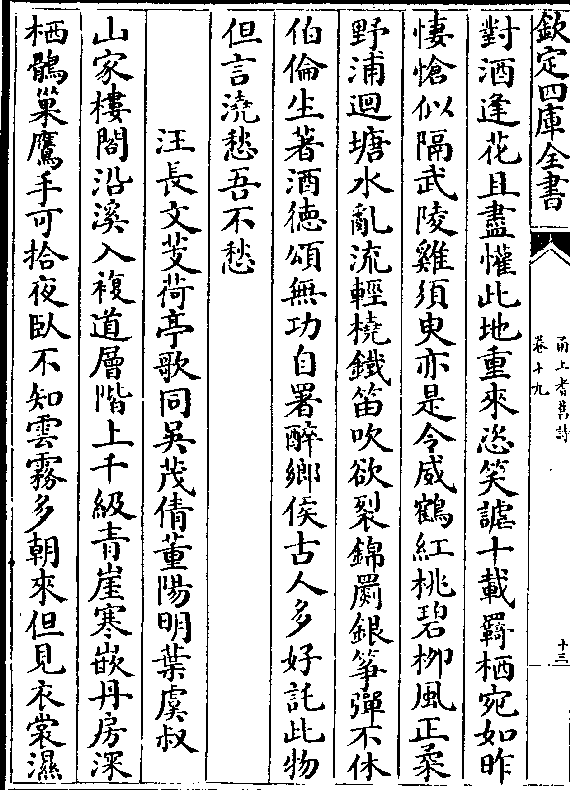 欽定四庫全書
甬上耆舊詩
卷十九
十三
對酒逢花且盡懽此地重來恣笑謔十載羇栖宛如昨
悽愴似隔武陵雞須臾亦是令威鶴紅桃碧柳風正柔
野浦迴塘水亂流輕橈鐵笛吹欲裂錦罽銀箏彈不休
伯倫生著酒德頌無功自署醉鄉侯古人多好託此物
但言澆愁吾不愁
汪長文芰荷亭歌同吳茂倩董陽明葉虞叔
山家樓閣沿溪入複道層階上千級青崖寒嵌丹房深
栖鶻巢鷹手可拾夜臥不知雲霧多朝來但見衣裳濕